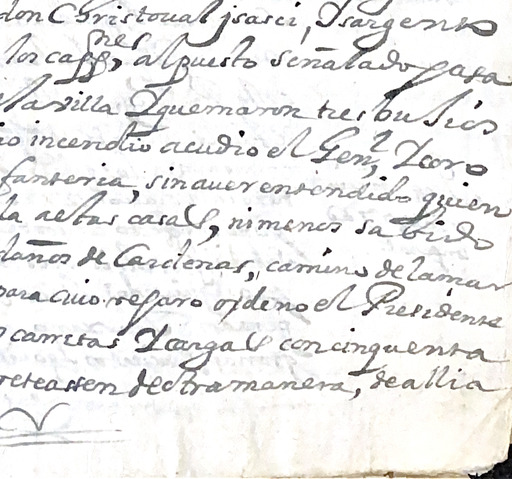 don Christoual jsasci, Ysargento
los capp,nes al puesto señalado para
la villa Yquemaron tres buhios
io incendio acudio el Gen,l Ycoro
fanteria, sin auer entendido quien
la aestas casas, ni menos sabido
daños de Cardenas, camino de la mar
para cuio reparo ordeno el Presidente
carretas Ycargas con cinquenta
reteassen de otra manera, de allia